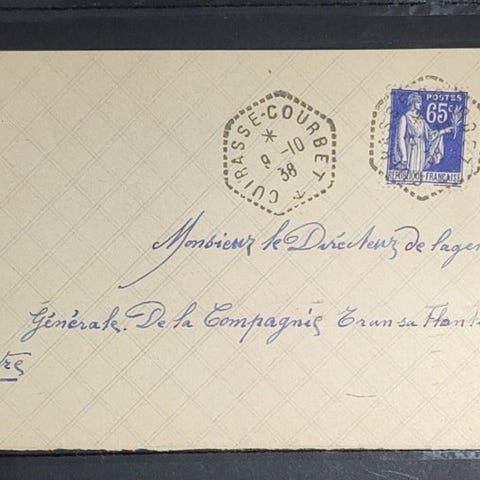 CUIRASSE-COURBET
*
9 -10
38
POSTES
65c
REPUBLIQUE-FRANÇAISE
Monsieur le Directeur de l'agen
Générale. De la Compagnie Transatlant
tre